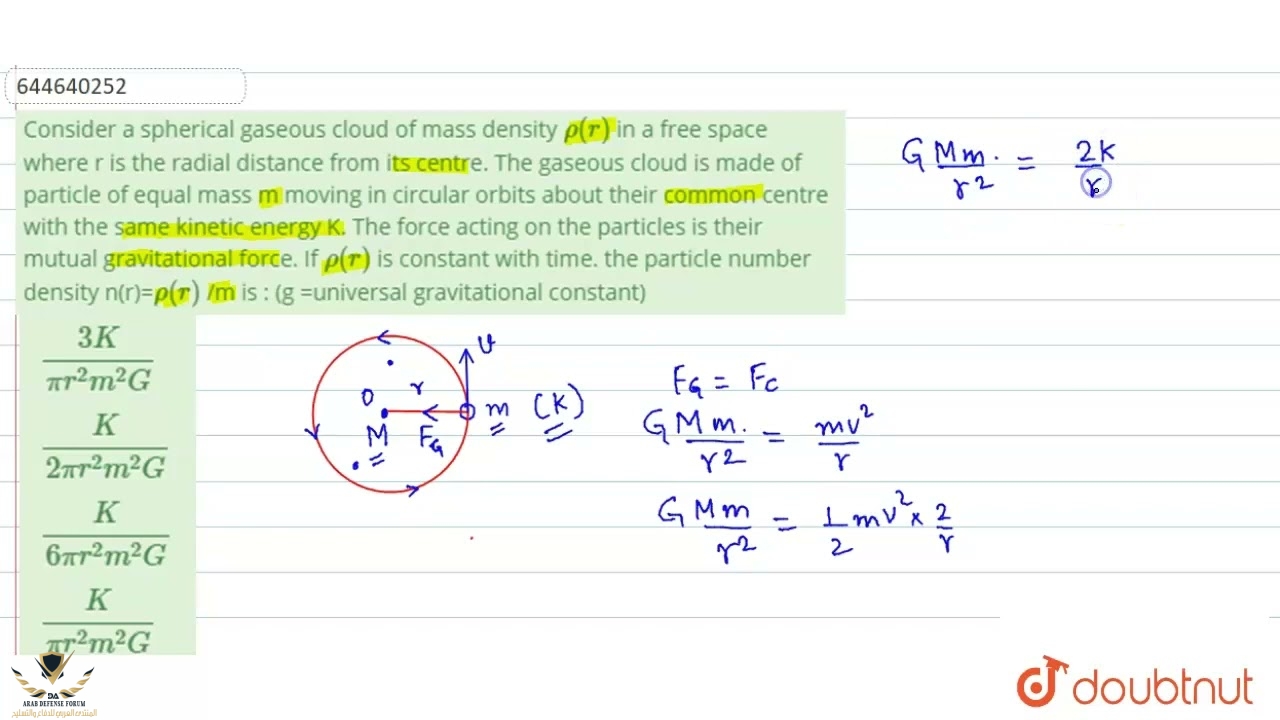 644640252
Consider a spherical gaseous cloud of mass density ρ(r) in a free space
where r is the radial distance from its centre. The gaseous cloud is made of
particle of equal mass m moving in circular orbits about their common centre
with the same kinetic energy K. The force acting on the particles is their
mutual gravitational force. If ρ(r) is constant with time. the particle number
density n(r)=ρ(r) /m is : (g =universal gravitational constant)
3K/πr²m²G
K/2πr²m²G
K/6πr²m²G
K/πr²m²G
v
O r m (K)
M F_G
F_G = F_C
G Mm./r² = mv²/r
G Mm/r² = 1/2 mv² × 2/r
G Mm./r² = 2K/r
DA
ARAB DEFENSE FORUM
المنتدى العربي للدفاع والتسليح
doubtnut